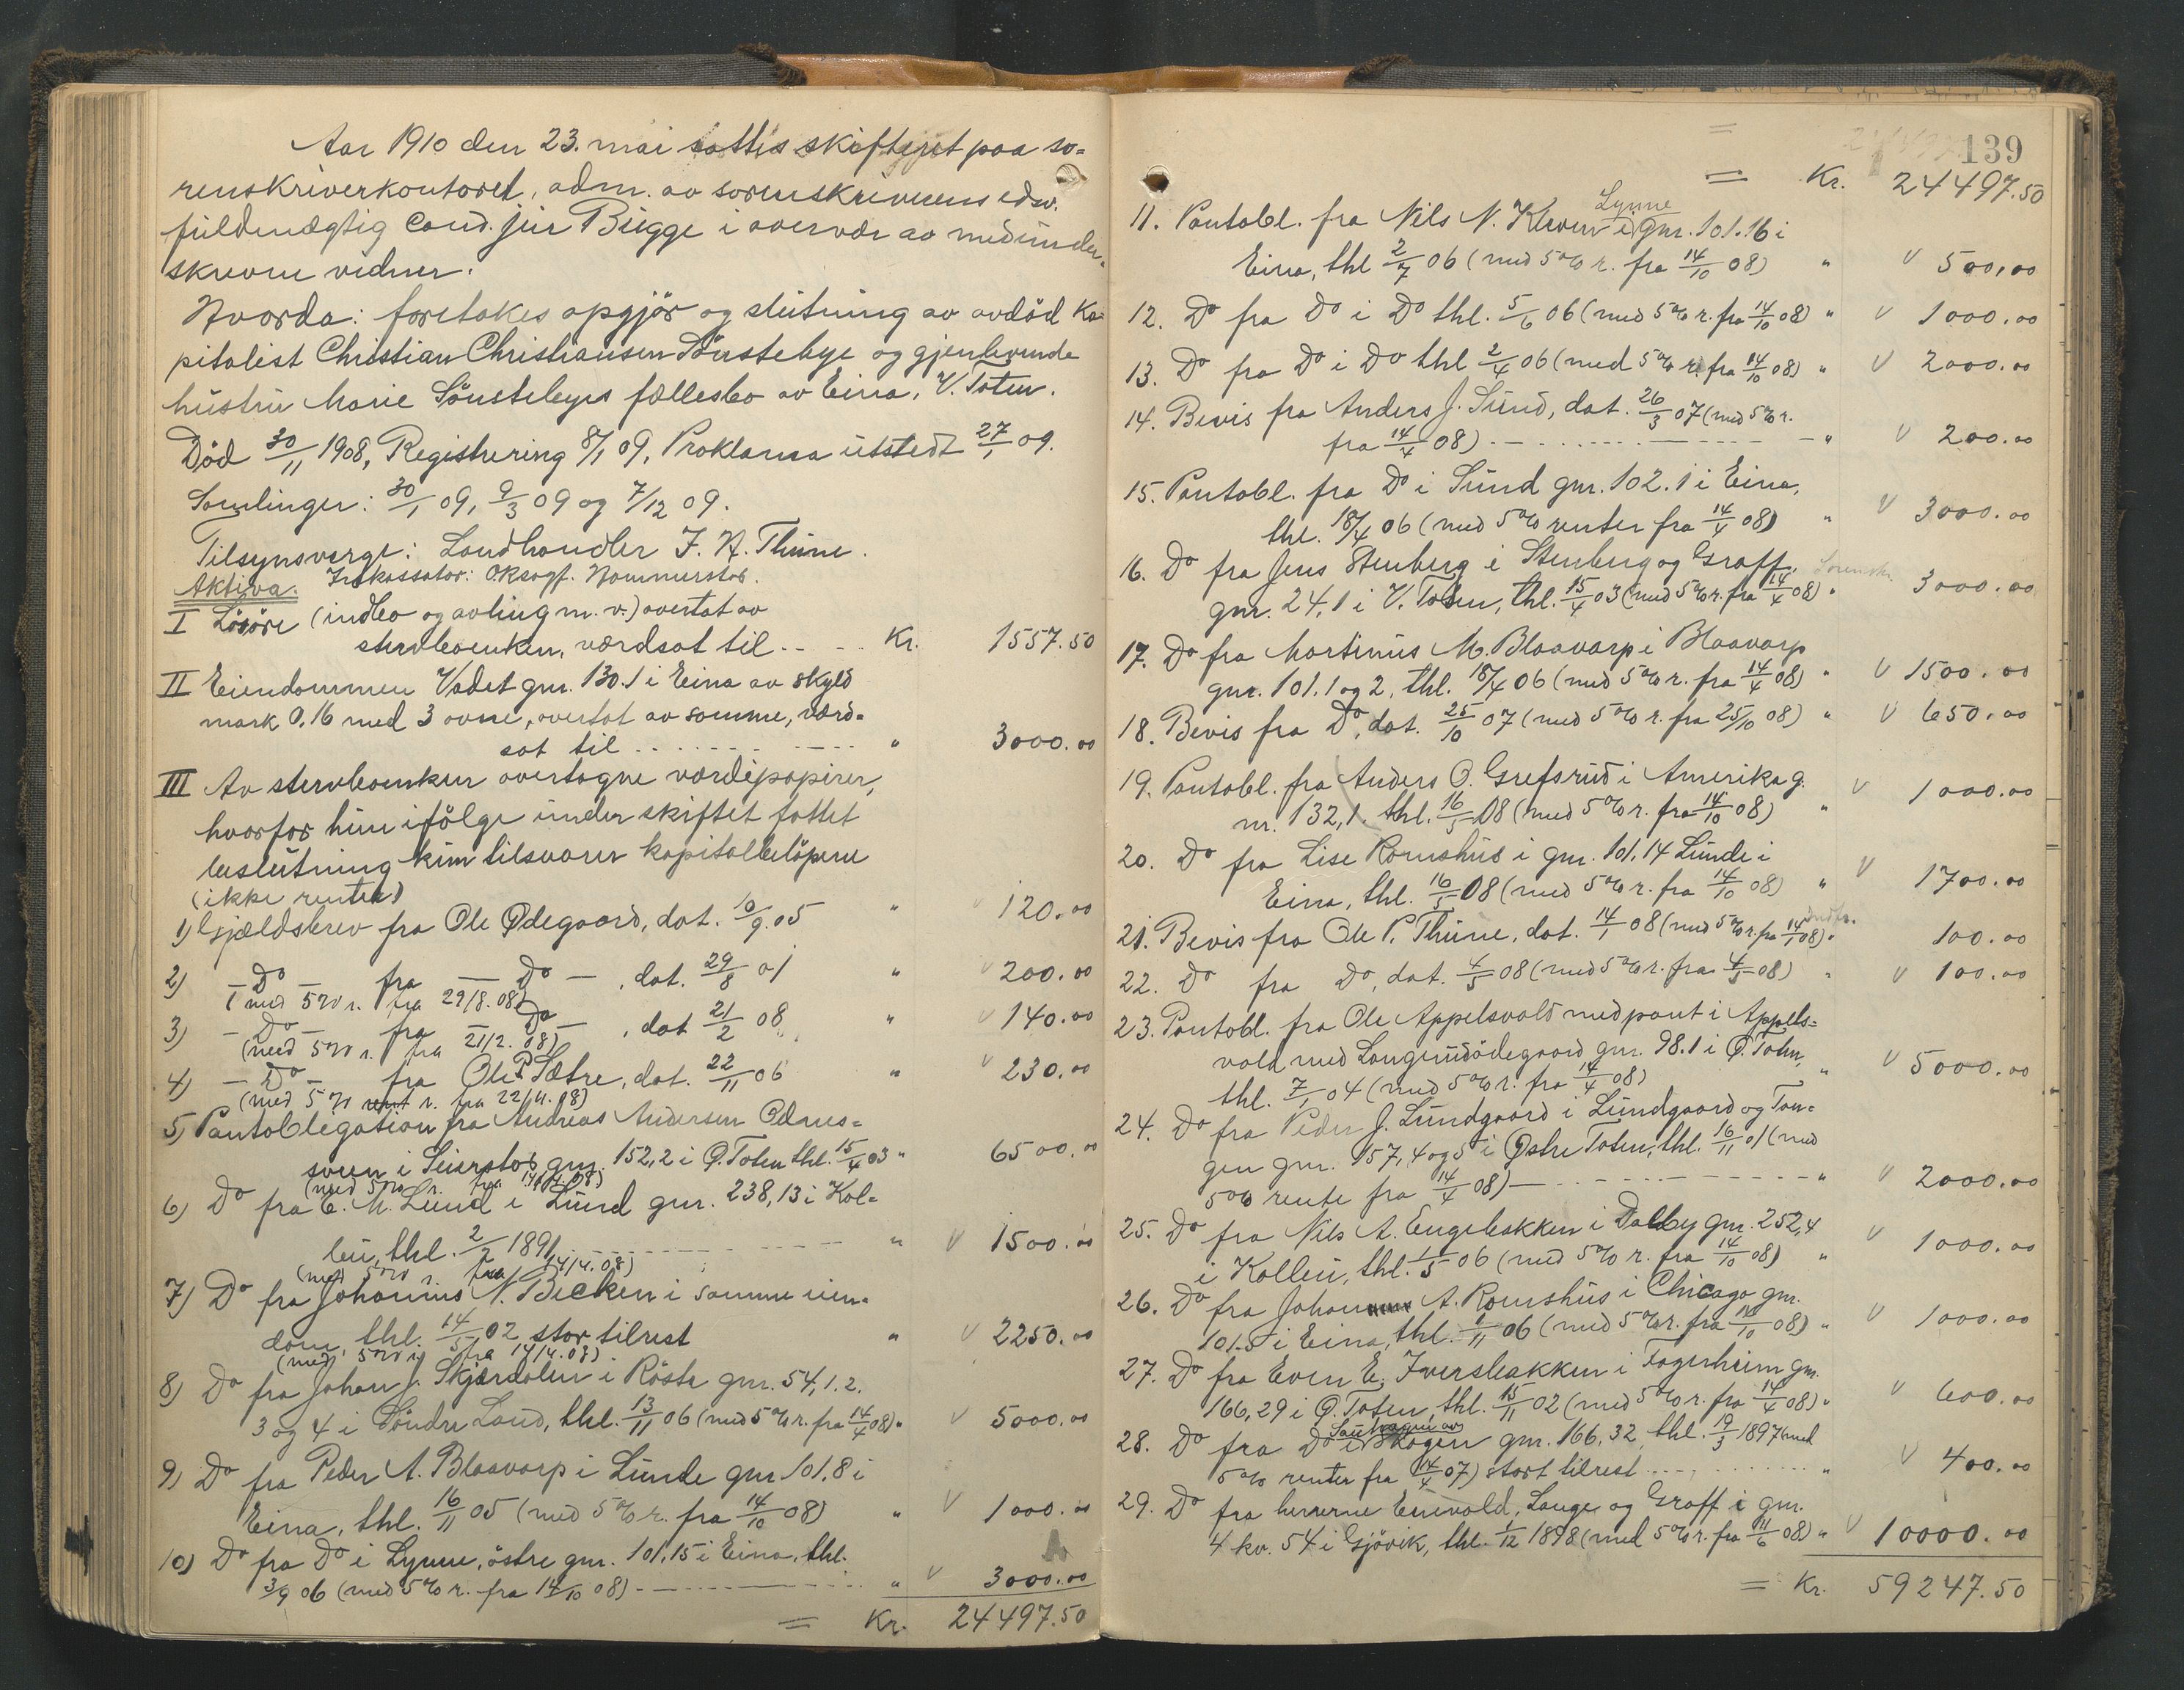 Aar 1910 den 23. mai sattes skifteret paa so=
renskriverkontoret, adm. av sorenskriverens edsv.
fuldmægtig cand. jur Bugge i overvær av medunder-
skrevne vidner.
Hvorda: foretokes opgjör og slutning av avdöd ka-
pitalist Christian Christiansen Sönstebye og gjenlevende
hustru Marie Sönstebyes fællesbo av Eina, V. Toten.
Död 30/11 1908, Registrering 8/1 09, Proklama utstedt 27/1 09.
Samlinger: 30/1 09, 9/3 09 og 7/12 09.
Tilsynsverge: Landhandler J. A. Thune.
Inkassator: O.Ksagf. Hammerstad.
Aktiva.
I Lösöre (indbo og avling m. v.) overtat av
stervboenken, værdsat til - - - Kr. 1557.50
II Eiendommen Vadet gnr. 130.1 i Eina av skyld
mark 0.16 med 3 ovne, overtat av samme, værd-
sat til - - - " 3000.00
III Av stervboenken overtagne værdipapirer,
hvorfor hun ifölge under skiftet fattet
beslutning kun tilsvarer kapitalbelöpene
(ikke renter)
1) Gjældsbrev fra Ole Ødegaard, dat. 10/9.05 " 120.00
2) - Do - fra - Do - , dat. 29/8 01 " 200.00
(med 5% r. fra 29/8.08)
3) - Do - fra - Do - , dat 21/2 08 " 140.00
(med 5% r. fra 21/2.08)
4) - Do - fra Ole P. Sætre, dat. 22/11 06 " 230.00
(med 5% r. fra 22/11.08)
5) Pantoblegation fra Andreas Andersen Odnes=
sveen i Seierstad gnr. 152,2 i Ø. Toten thl. 15/4 03 " 6500.00
(med 5% r. fra 14/4.08)
6) Do fra C. M. Lund i Lund gnr. 238,13 i Kol=
bu, thl. 2/2 1891 - - - " 1500.00
(med 5% r. fra 14/4.08)
7) Do fra Johannes N. Becken i samme eien-
dom, thl. 14/5 02 stor tilrest " 2250.00
(med 5% r. fra 14/4.08)
8) Do fra Johan J. Skjærdalen i Röste gnr. 54,1.2.
3 og 4 i Söndre Land, thl. 13/11 06 (med 5% r. fra 14/4 08) " 5000.00
9) Do fra Peder A. Blaavarp i Lunde gnr 101.8 i
Eina, thl. 16/11 05 (med 5% r. fra 14/10 08) " 1000.00
10) Do fra Do i Lynne, östre gnr. 101,15 i Eina, thl.
3/9 06 (med 5% r. fra 14/10 08) - - - " 3000.00
= Kr. 24497.50
139
= Kr. 24497.50
11. Pantobl. fra Nils N. Kleven i Lynne gnr. 101.16 i
Eina, thl 2/7 06 (med 5% r. fra 14/10 08) " 500.00
12. Do fra Do i Do thl. 5/6 06 (med 5% r. fra 14/10 08) " 1000.00
13. Do fra Do i Do thl 2/4 06 (med 5% r. fra 14/10 08) " 2000.00
14. Bevis fra Anders J. Sund, dat. 26/3 07 (med 5% r.
fra 14/4 08) - - - " 200.00
15. Pantobl. fra Do i Sund gnr. 102.1 i Eina,
thl. 18/4 06 (med 5% renter fra 14/4 08) " 3000.00
16. Do fra Jens Stenberg i Stenberg og Graff.
gnr. 24,1 i V. Toten, thl. 15/4 03 (med 5% r. fra 14/4 08) " 3000.00
17. Do fra Martinus M. Blaavarp i Blaavarp
gnr. 101.1 og 2, thl. 18/4 06 (med 5% r. fra 14/4 08) " 1500.00
18. Bevis fra Do, dat. 25/10 07 (med 5% r. fra 25/10 08) " 650.00
19. Pantobl. fra Anders O. Grefsrud i Amerika g.
nr. 132,1. thl. 16/5 08 (med 5% r. fra 14/10 08) " 1000.00
20. Do fra Lise Romshus i gnr. 101.14 Lunde i
Eina, thl. 16/5 08 (med 5% r. fra 14/10 08) " 1700.00
21. Bevis fra Ole P. Thune, dat. 14/1 08 (med 5% r. fra 14/1 08) " 100.00
22. Do fra Do, dat. 4/5 08 (med 5% r. fra 4/5 08) " 100.00
23. Pantobl. fra Ole Appelsvold med pant i Appels=
vold med Langrudödegaard gnr. 98.1 i Ø. Toten,
thl. 7/1 04 (med 5% r. fra 14/4 08) " 5000.00
24. Do fra Peder J. Lundgaard i Lundgaard og Tan=
gen gnr. 157,4 og 5 i Østre Toten, thl. 16/11 01 (med
5% rente fra 14/4 08) - - - " 2000.00
25. Do fra Nils A. Engebakken i Dalby gnr. 252,4
i Kolbu, thl. 1/5 06 (med 5% r. fra 14/10 08) " 1000.00
26. Do fra Johan A. Romshus i Chicago gnr.
101.5 i Eina, thl. 1/11 06 (med 5% r. fra 14/10 08) " 1000.00
27. Do fra Even E. Iversbakken i Fagerheim gnr.
166,29 i Ø. Toten, thl. 15/11 02 (med 5% r. fra 14/4 08) " 600.00
28. Do fra Do i Skogen gnr. 166,32, thl. 19/3 1897 med
5% renter fra 14/4 07) stort tilrest - - - " 400.00
29. Do fra herrerne Enevold, Lange og Graff i gnr.
4 kv. 54 i Gjövik, thl. 1/12 1898 (med 5% r. fra 11/6 08) " 10000.00
= Kr. 59247.50